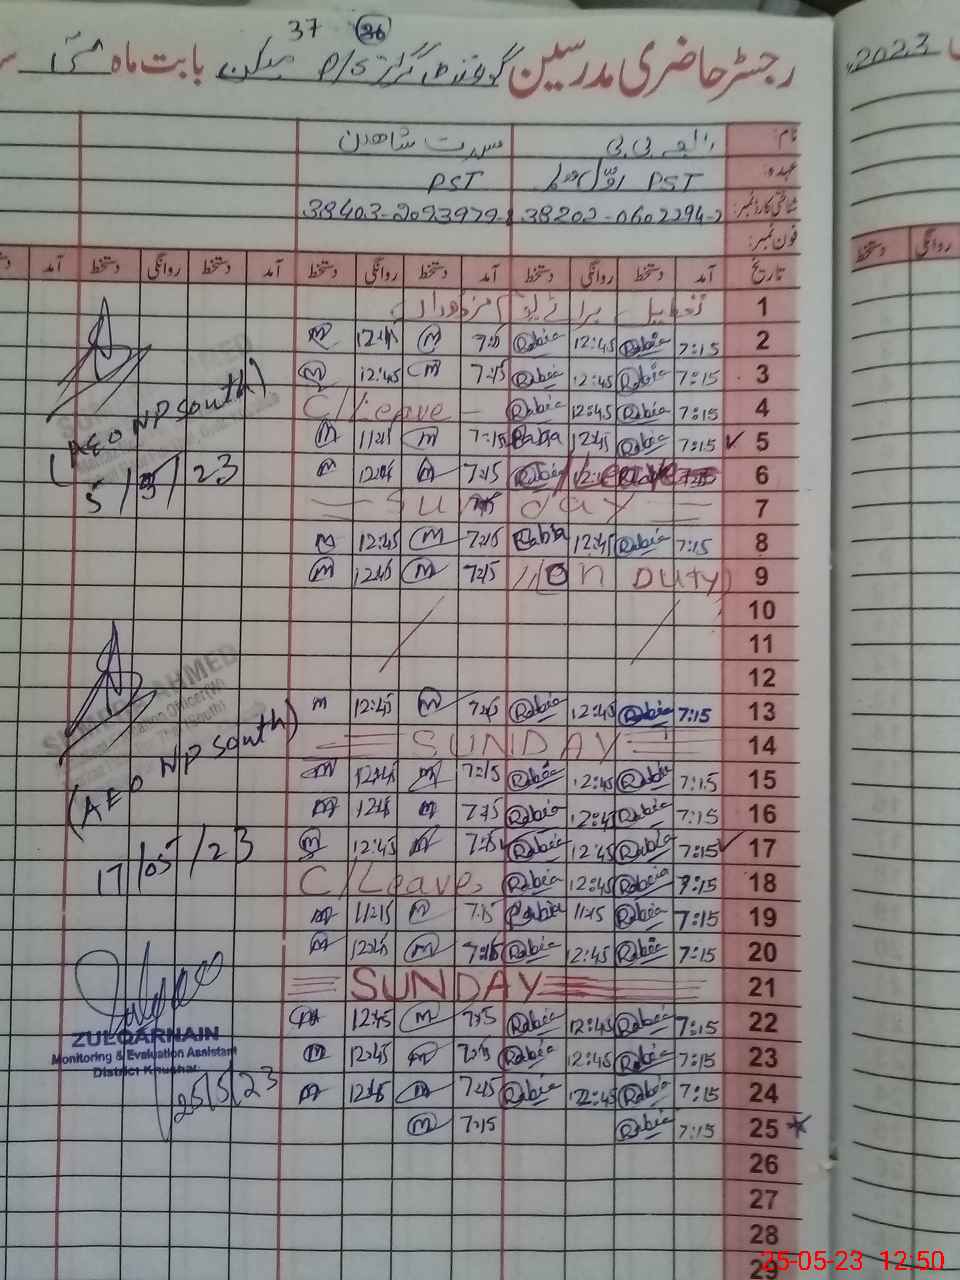 37 36
رجسٹر حاضری مدرسین گورنمنٹ گرلز P/S بابت ماہ مئی
2023
نام: رابعہ بی بی مسرت شاھین
عہدہ: PST PST
شناختی کارڈ نمبر: 38202-0602294-2 38403-2093979-8
فون نمبر:
تاریخ آمد دستخط روانگی دستخط آمد دستخط روانگی دستخط آمد دستخط روانگی دستخط آمد
روانگی دستخط
1 تعطیل
2 7:15 Rabia 12:45 Rabia m m
3 7:15 Rabia 12:45 Rabia 7:15 m 12:45 m
4 7:15 Rabia 12:45 Rabia C/Leave
5 7:15 Rabia 12:45 Rabia 7:15 m 11:15 m
6 Rabia 7:15 m m
7 Sunday
8 7:15 Rabia 12:45 Rabia 7:15 m 12:45 m
9 On Duty 7:15 m 12:45 m
10
11
12
13 7:15 Rabia 12:45 Rabia m 12:45 m
14 SUNDAY
15 7:15 Rabia 12:45 Rabia 7:15 m 12:45 m
16 7:15 Rabia 12:45 Rabia 7:15 m m
17 7:15 Rabia 12:45 Rabia 7:15 m 12:45 m
18 7:15 Rabia 12:45 Rabia C/Leave
19 7:15 Rabia 11:15 Rabia 7:15 m 11:15 m
20 7:15 Rabia 12:45 Rabia 7:15 m 12:45 m
21 SUNDAY
22 7:15 Rabia 12:45 Rabia m 12:45 m
23 7:15 Rabia 12:45 Rabia m 12:45 m
24 7:15 Rabia 12:45 Rabia 7:15 m m
25 7:15 Rabia 7:15 m
26
27
28
29
(AEO NP South)
5/5/23
AHMED
(AEO NP South)
17/05/23
ZULQARNAIN
Monitoring & Evaluation Assistant
District Khushab
25/5/23
25-05-23 12:50